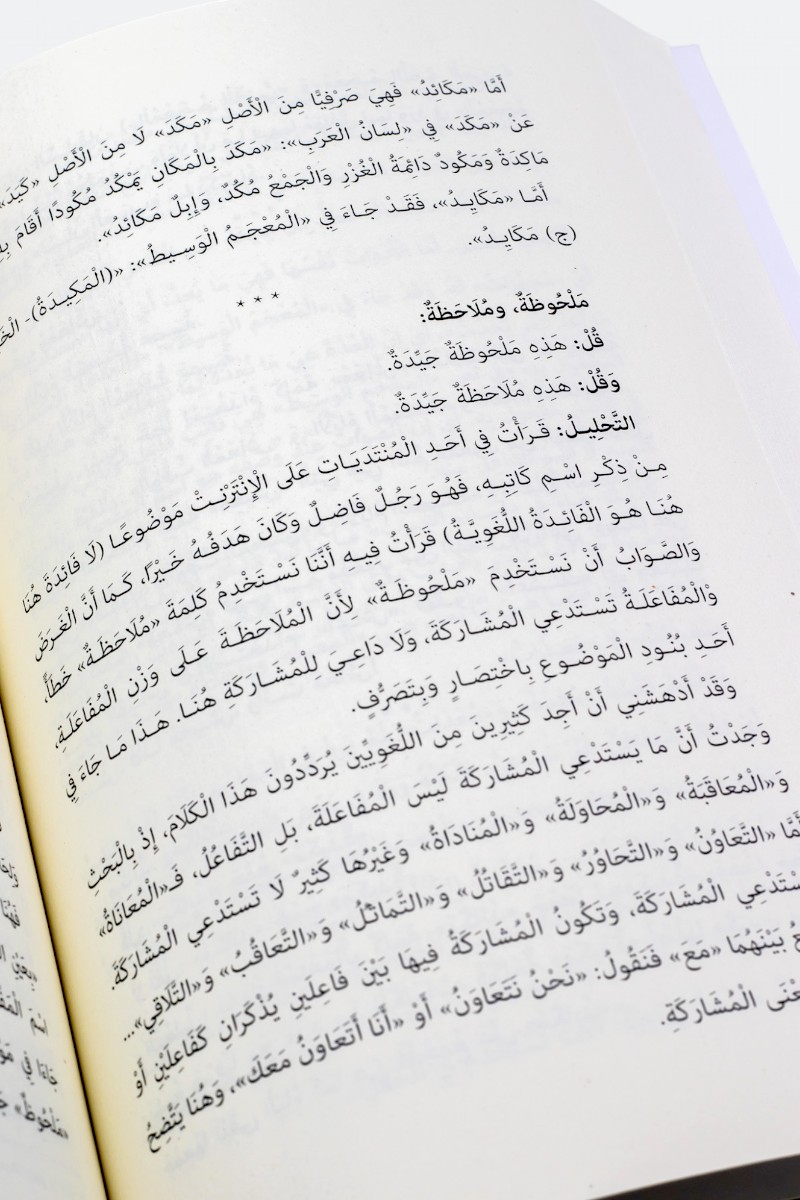 أَمَّا «مَكَائِدُ» فَهِيَ صَرْفِيًّا مِنَ الْأَصْلِ «مَكَدَ» لَا مِنَ الْأَصْلِ «كَيَدَ»
عَنْ «مَكَدَ» فِي «لِسَانُ الْعَرَبِ»: «مَكَدَ بِالْمَكَانِ يَمْكُدُ مُكُودًا أَقَامَ
مَاكِدَةٌ وَمَكُودٌ دَائِمَةُ الْغُزْرِ وَالْجَمْعُ مُكُدٌ، وَإِبِلٌ مَكَائِدُ».
أَمَّا «مَكَايِدُ»، فَقَدْ جَاءَ فِي «الْمُعْجَمُ الْوَسِيطُ»: «(الْمَكِيدَةُ)-
(ج) مَكَايِدُ».
* * *
مَلْحُوظَةٌ، ومُلَاحَظَةٌ:
قُلْ: هَذِهِ مَلْحُوظَةٌ جَيِّدَةٌ.
وَقُلْ: هَذِهِ مُلَاحَظَةٌ جَيِّدَةٌ.
التَّحْلِيلُ: قَرَأْتُ فِي أَحَدِ الْمُنْتَدَيَاتِ عَلَى الْإِنْتَرْنِتْ مَوْضُوعًا (لَا فَائِدَةَ هُنَا
مِنْ ذِكْرِ اسْمِ كَاتِبِهِ، فَهُوَ رَجُلٌ فَاضِلٌ وَكَانَ هَدَفُهُ خَيْرًا، كَمَا أَنَّ الْغَرَضَ
هُنَا هُوَ الْفَائِدَةُ اللُّغَوِيَّةُ) قَرَأْتُ فِيهِ أَنَّنَا نَسْتَخْدِمُ كَلِمَةَ «مُلَاحَظَةٌ» خَطَأً،
وَالصَّوَابُ أَنْ نَسْتَخْدِمَ «مَلْحُوظَةٌ» لِأَنَّ الْمُلَاحَظَةَ عَلَى وَزْنِ الْمُفَاعَلَةِ،
وْالْمُفَاعَلَةُ تَسْتَدْعِي الْمُشَارَكَةَ، وَلَا دَاعِيَ لِلْمُشَارَكَةِ هُنَا. هَذَا مَا جَاءَ فِي
أَحَدِ بُنُودِ الْمَوْضُوعِ بِاخْتِصَارٍ وَبِتَصَرُّفٍ.
وَقَدْ أَدْهَشَنِي أَنْ أَجِدَ كَثِيرِينَ مِنَ اللُّغَوِيِّينَ يُرَدِّدُونَ هَذَا الْكَلَامَ، إِذْ بِالْبَحْثِ
وَجَدْتُ أَنَّ مَا يَسْتَدْعِي الْمُشَارَكَةَ لَيْسَ الْمُفَاعَلَةَ، بَلِ التَّفَاعُلُ، فَـ«الْمُعَانَاةُ»
وَ«الْمُعَاقَبَةُ» وَ«الْمُحَاوَلَةُ» وَ«الْمُنَادَاةُ» وَغَيْرُهَا كَثِيرٌ لَا تَسْتَدْعِي الْمُشَارَكَةَ.
أَمَّا «التَّعَاوُنُ» وَ«التَّحَاوُرُ» وَ«التَّقَاتُلُ» وَ«التَّمَاثُلُ» وَ«التَّعَاقُبُ» وَ«التَّلَاقِي»...
الْمُشَارَكَةَ، وَتَكُونُ الْمُشَارَكَةُ فِيهَا بَيْنَ فَاعِلَينِ يُذْكَرَانِ كَفَاعِلَيْنِ أَوْ
بَيْنَهُمَا «مَعَ» فَنَقُولُ: «نَحْنُ نَتَعَاوَنُ» أَوْ «أَنَا أَتَعَاوَنُ مَعَكَ»، وَهُنَا يَتَّضِحُ
الْمُشَارَكَةِ.
«مَلْحُوظٌ»